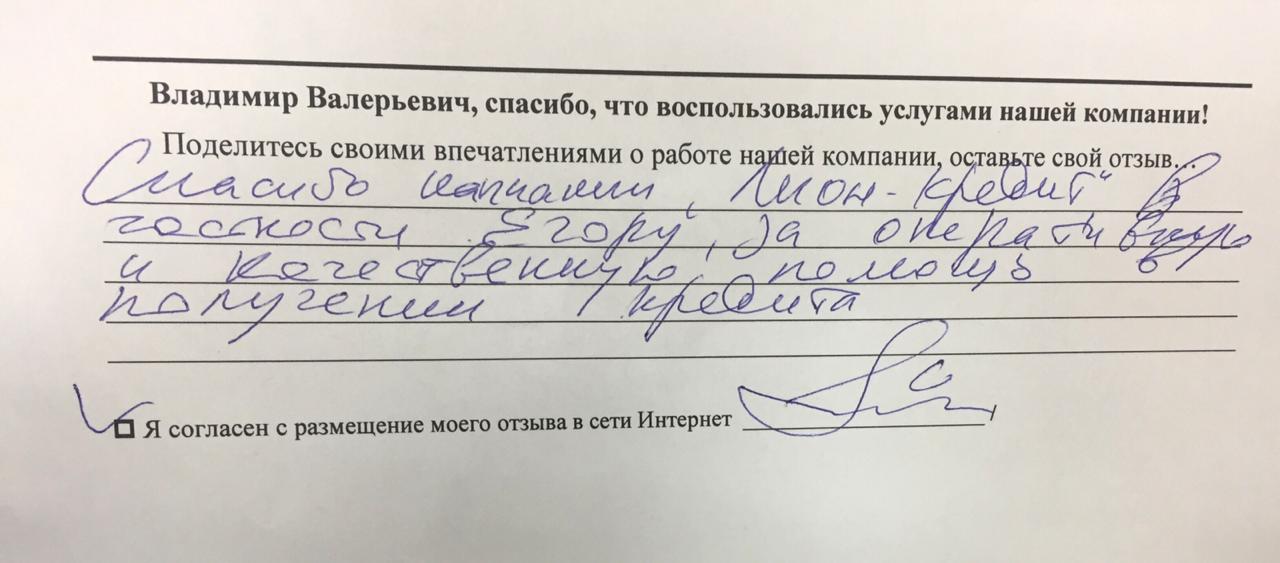 Владимир Валерьевич, спасибо, что воспользовались услугами нашей компании!
Поделитесь своими впечатлениями о работе нашей компании, оставьте свой отзыв…
Спасибо компании „Лион-кредит“ В
частности Егору, за оперативную
и качественную помощь в
получении кредита
Я согласен с размещение моего отзыва в сети Интернет